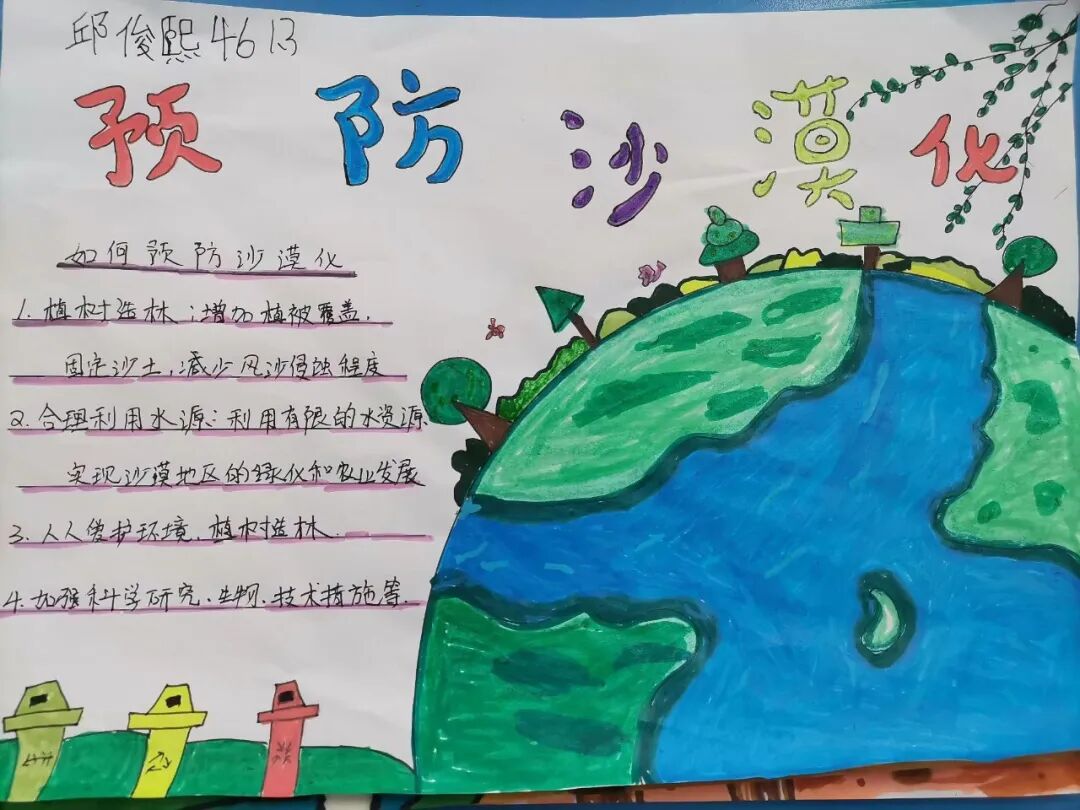 邱俊熙4613
预防沙漠化
如何预防沙漠化
1.植树造林：增加植被覆盖，
固定沙土，减少风沙侵蚀程度
2.合理利用水源：利用有限的水资源
实现沙漠地区的绿化和农业发展
3.人人爱护环境，植树造林.
4.加强科学研究、生物、技术措施等.